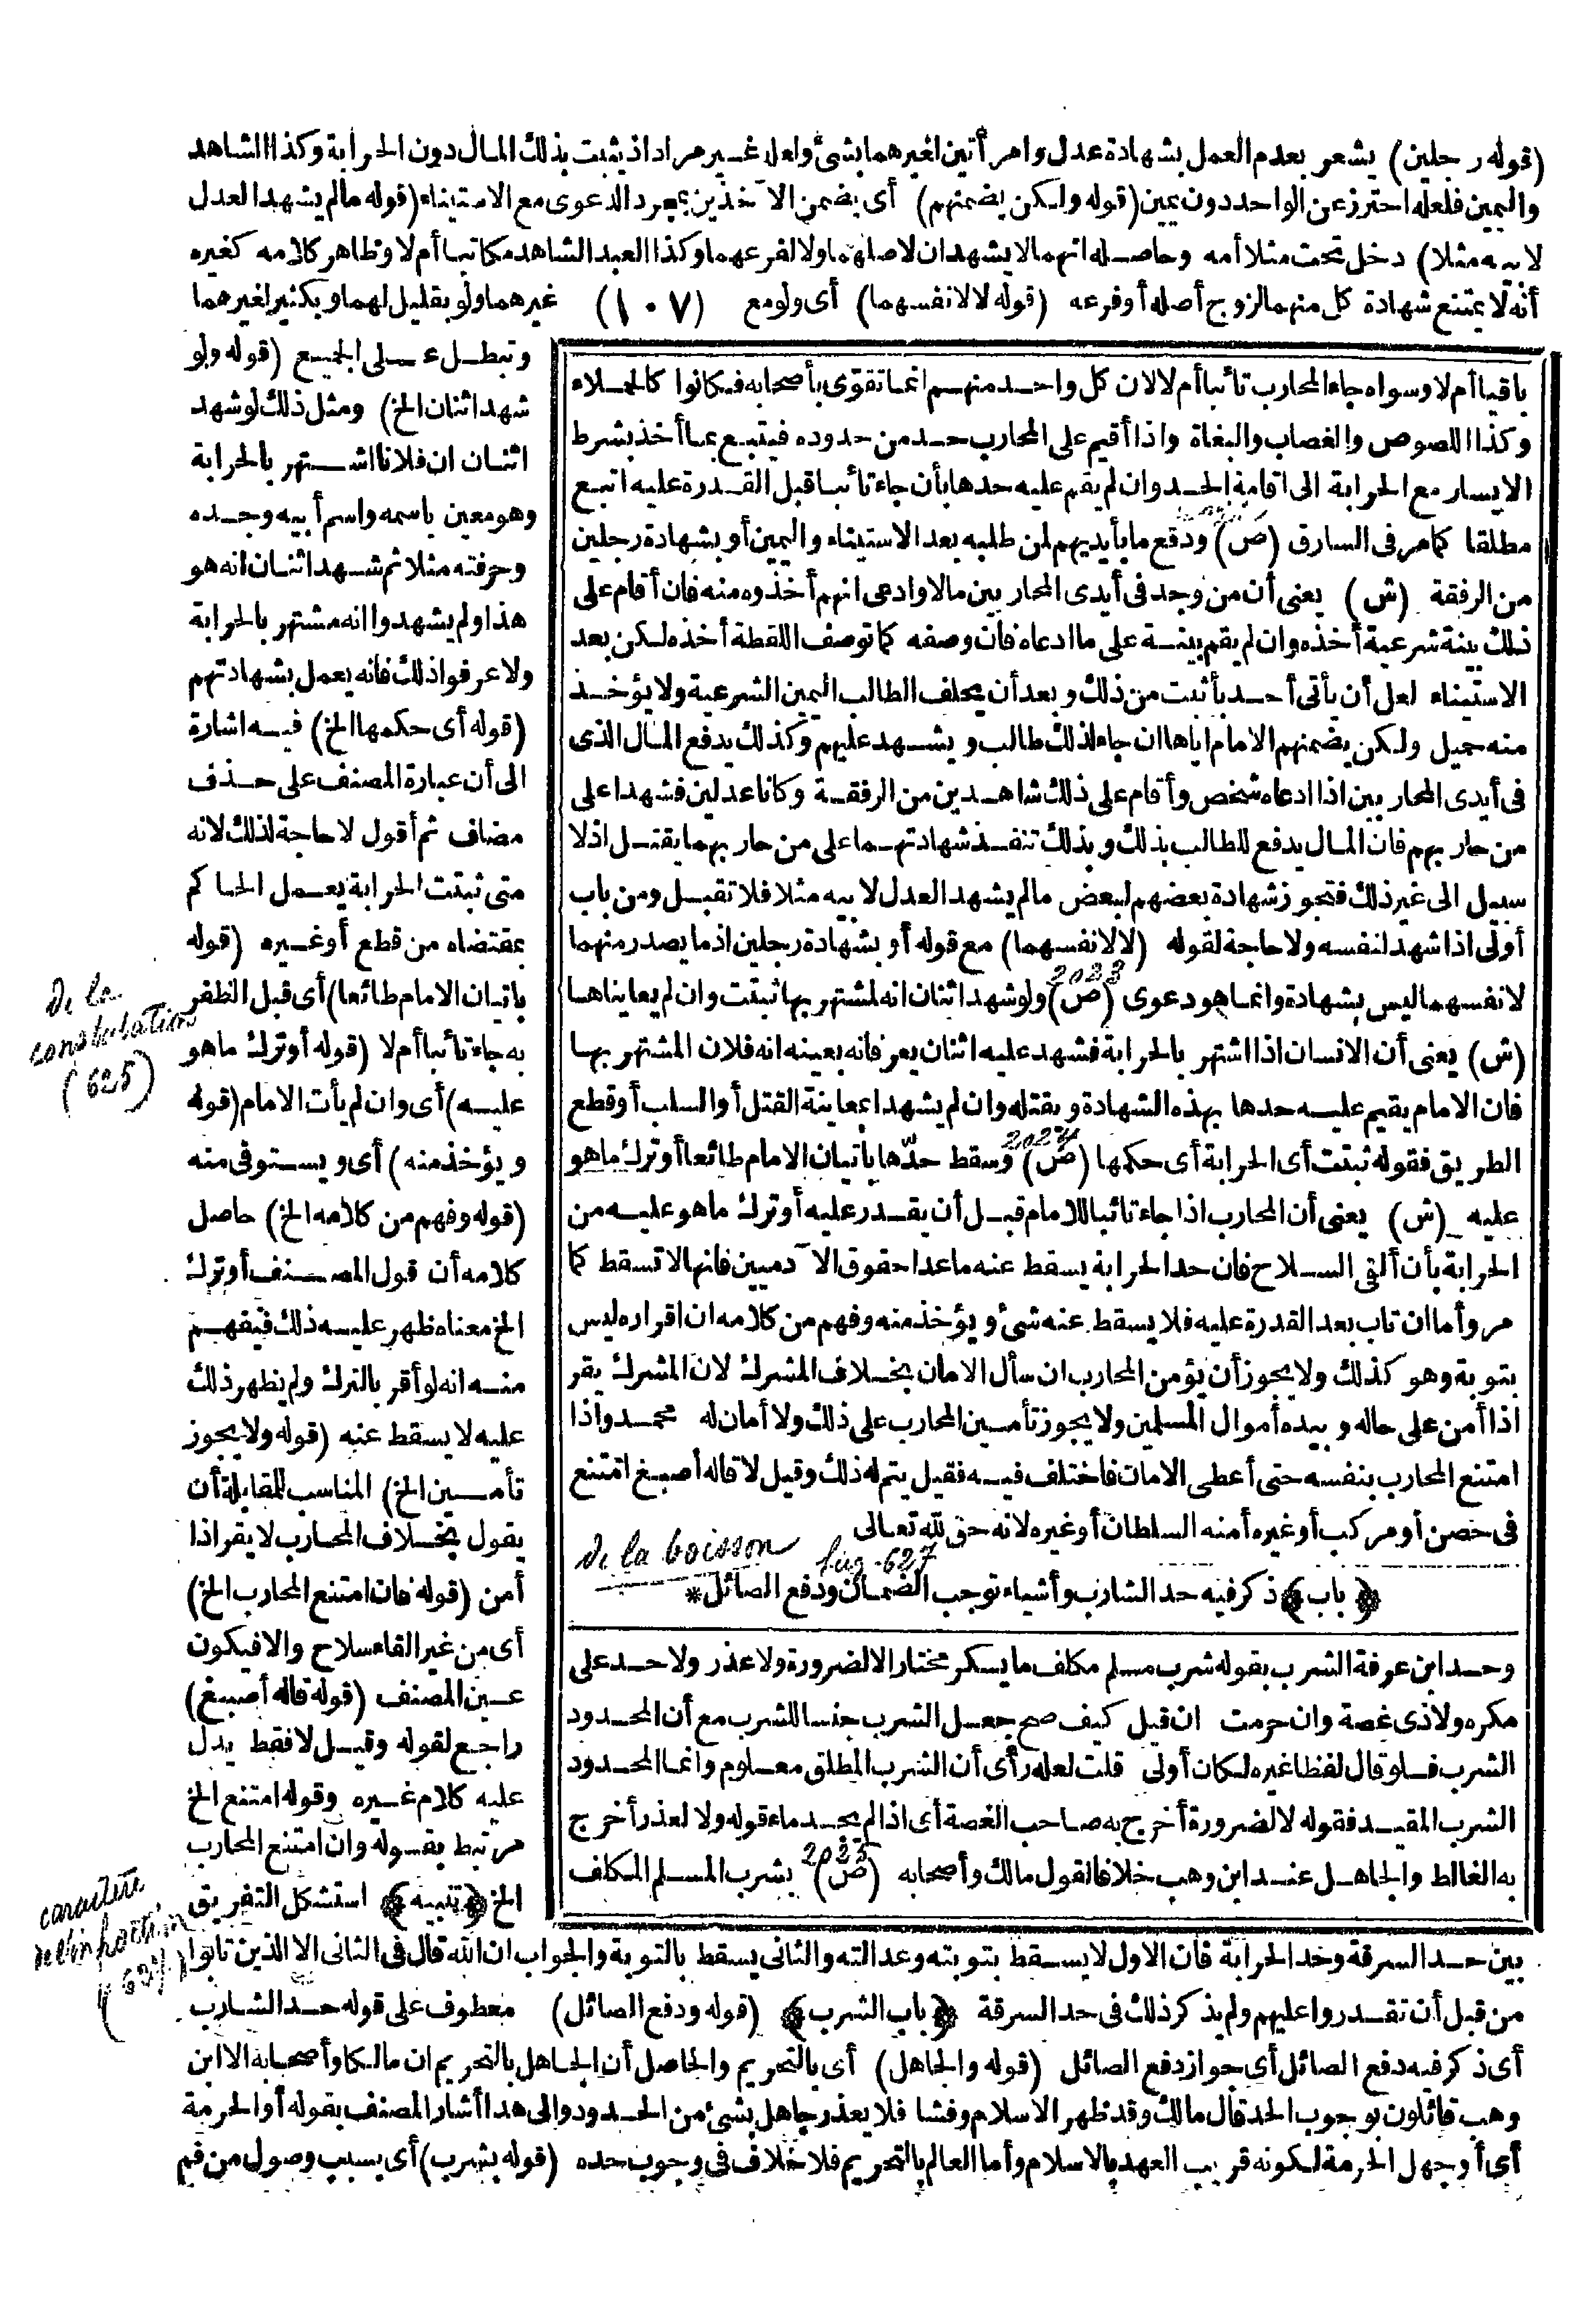 (قوله رجلين) يشعر بعدم العمل بشهادة عدل وامرأتين لغيرهما بشئ ولعله غير مراد اذ يثبت بذلك المال دون الحرابة وكذا الشاهد
واليمين فلعله احترز عن الواحد دون يمين (قوله ولكن يضمنهم) أى يضمن الآخذين بمجرد الدعوى مع الاستيناء (قوله مالم يشهد العدل
لابيه مثلا) دخل تحت مثلا أمه وحاصله انهما لا يشهدان لاصلهما ولا لفرعهما وكذا العبد الشاهد مكاتبا أم لا وظاهر كلامه كغيره
أنه لا يمتنع شهادة كل منهما لزوج أصله أو فرعه (قوله لا لانفسهما) أى ولو مع (١٠٧) غيرهما ولو بقليل لهما وبكثير لغيرهما
باقيا أم لا وسواء جاء المحارب تائبا أم لا لان كل واحد منهم انما تقوى بأصحابه فكانوا كالحملاء
وكذا اللصوص والغصاب والبغاة واذا أقيم على المحارب حد من حدوده فيتبع بما أخذ بشرط
الايسار مع الحرابة الى اقامة الحد وان لم يقم عليه حدها بأن جاء تائبا قبل القدرة عليه اتبع
مطلقا كما مر فى السارق (ص) ودفع ما بأيديهم لمن طلبه بعد الاستيناء واليمين أو بشهادة رجلين
من الرفقة (ش) يعنى أن من وجد فى أيدى المحاربين مالا وادعى انهم أخذوه منه فان أقام على
ذلك بينة شرعية أخذه وان لم يقم بينة على ما ادعاه فان وصفه كما توصف اللقطة أخذه لكن بعد
الاستيناء لعل أن يأتى أحد بأثبت من ذلك وبعد أن يحلف الطالب اليمين الشرعية ولا يؤخذ
منه حميل ولكن يضمنهم الامام اياها ان جاء لذلك طالب ويشهد عليهم وكذلك يدفع المال الذى
فى أيدى المحاربين اذا ادعاه شخص وأقام على ذلك شاهدين من الرفقة وكانا عدلين فشهدا على
من حاربهم فان المال يدفع للطالب بذلك وبذلك تنفذ شهادتهما على من حاربهما بقتل اذ لا
سبيل الى غير ذلك فتجوز شهادة بعضهم لبعض مالم يشهد العدل لابيه مثلا فلا تقبل ومن باب
أولى اذا شهد لنفسه ولا حاجة لقوله (لا لانفسهما) مع قوله أو بشهادة رجلين اذ ما يصدر منهما
لانفسهما ليس بشهادة وانما هو دعوى (ص) ولو شهد اثنان انه لمشتهر بها ثبتت وان لم يعايناها
2023
(ش) يعنى أن الانسان اذا اشتهر بالحرابة فشهد عليه اثنان يعرفانه بعينه انه فلان المشتهر بها
فان الامام يقيم عليه حدها بهذه الشهادة ويقتله وان لم يشهدا بمعاينة القتل أو السلب أو قطع
الطريق فقوله ثبتت أى الحرابة أى حكمها (ص) وسقط حدّها باتيان الامام طائعا أو ترك ما هو
2024
عليه (ش) يعنى أن المحارب اذا جاء تائبا للامام قبل أن يقدر عليه أو ترك ما هو عليه من
الحرابة بأن ألقى السلاح فان حد الحرابة يسقط عنه ما عدا حقوق الآدميين فانها لا تسقط كما
مر وأما ان تاب بعد القدرة عليه فلا يسقط عنه شئ ويؤخذ منه وفهم من كلامه ان اقراره ليس
بتوبة وهو كذلك ولا يجوز أن يؤمن المحارب ان سأل الامان بخلاف المشرك لان المشرك يقر
اذا أمن على حاله وبيده أموال المسلمين ولا يجوز تأمين المحارب على ذلك ولا أمان له محمد واذا
امتنع المحارب بنفسه حتى أعطى الامان فاختلف فيه فقيل يتم له ذلك وقيل لا قاله أصبغ امتنع
فى حصن أو مركب أو غيره أمنه السلطان أو غيره لانه حق لله تعالى
de la boisson fug. 627
﴿باب﴾ ذكر فيه حد الشارب وأشياء توجب الضمان ودفع الصائل*
وحد ابن عرفة الشرب بقوله شرب مسلم مكلف ما يسكر مختارا لا لضرورة ولا عذر ولا حد على
مكره ولا ذى غصة وان حرمت ان قيل كيف صح جعل الشرب جنسا للشرب مع أن المحدود
الشرب فلو قال لفظا غيره لكان أولى قلت لعله رأى أن الشرب المطلق معلوم وانما المحدود
الشرب المقيد فقوله لا لضرورة أخرج به صاحب الغصة أى اذا لم يجد ماء قوله ولا لعذر أخرج
به الغالط والجاهل عند ابن وهب خلافا لقول مالك وأصحابه (ص) بشرب المسلم المكلف
2025
وتبطل على الجميع (قوله ولو
شهد اثنان الخ) ومثل ذلك لو شهد
اثنان ان فلانا اشتهر بالحرابة
وهو معين باسمه واسم أبيه وجده
وحرفته مثلا ثم شهد اثنان انه هو
هذا ولم يشهدوا انه مشتهر بالحرابة
ولا عرفوا ذلك فانه يعمل بشهادتهم
(قوله أى حكمها الخ) فيه اشارة
الى أن عبارة المصنف على حذف
مضاف ثم أقول لا حاجة لذلك لانه
متى ثبتت الحرابة يعمل الحاكم
بمقتضاه من قطع أو غيره (قوله
باتيان الامام طائعا) أى قبل الظفر
به جاء تائبا أم لا (قوله أو ترك ما هو
عليه) أى وان لم يأت الامام (قوله
ويؤخذ منه) أى ويستوفى منه
(قوله وفهم من كلامه الخ) حاصل
كلامه أن قول المصنف أو ترك
الخ معناه ظهر عليه ذلك فيفهم
منه انه لو أقر بالترك ولم يظهر ذلك
عليه لا يسقط عنه (قوله ولا يجوز
تأمين الخ) المناسب للمقابلة أن
يقول بخلاف المحارب لا يقر اذا
أمن (قوله فان امتنع المحارب الخ)
أى من غير القاء سلاح والا فيكون
عين المصنف (قوله قاله أصبغ)
راجع لقوله وقيل لا فقط يدل
عليه كلام غيره وقوله امتنع الخ
مرتبط بقوله وان امتنع المحارب
الخ ﴿تنبيه﴾ استشكل التفريق
de la
constatation
(625)
caractère
بين حد السرقة وحد الحرابة فان الاول لا يسقط بتوبته وعدالته والثانى يسقط بالتوبة والجواب ان الله قال فى الثانى الا الذين تابوا
من قبل أن تقدروا عليهم ولم يذكر ذلك فى حد السرقة ﴿باب الشرب﴾ (قوله ودفع الصائل) معطوف على قوله حد الشارب
أى ذكر فيه دفع الصائل أى جواز دفع الصائل (قوله والجاهل) أى بالتحريم والحاصل أن الجاهل بالتحريم ان مالكا وأصحابه الا ابن
وهب قائلون بوجوب الحد قال مالك وقد ظهر الاسلام وفشا فلا يعذر جاهل بشئ من الحدود والى هذا أشار المصنف بقوله أو الحرمة
أى أو جهل الحرمة لكونه قريب العهد بالاسلام وأما العالم بالتحريم فلا خلاف فى وجوب حده (قوله بشرب) أى بسبب وصول من فم